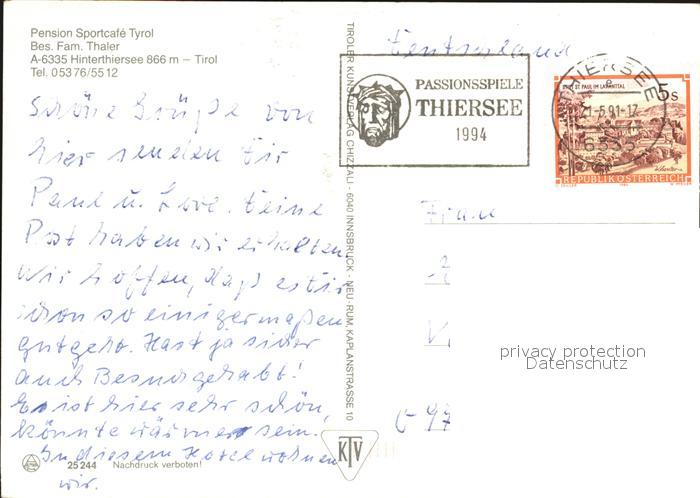 Pension Sportcafé Tyrol
Bes. Fam. Thaler
A-6335 Hinterthiersee 866 m – Tirol
Tel. 05376/5512
Schöne Grüße von
hier senden Dir
Paul u. Love. Deine
Post haben wir erhalten,
wir hoffen, daß es Dir
schon so einigermaßen
gutgeht. Hast ja sicher
auch Besuch gehabt!
Es ist hier sehr schön,
könnte wärmer sein.
In diesem Hotel wohnen
wir.
25 244 Nachdruck verboten!
TIROLER KUNSTVERLAG CHIZZALI - 6040 INNSBRUCK - NEU-RUM, KAPLANSTRASSE 10
KTV
Deutschland
PASSIONSSPIELE
THIERSEE
1994
THIERSEE
21.-6.91-17
6335
STIFT ST. PAUL IM LAVANTTAL
5s
REPUBLIK ÖSTERREICH
Frau
A
K
privacy protection
Datenschutz